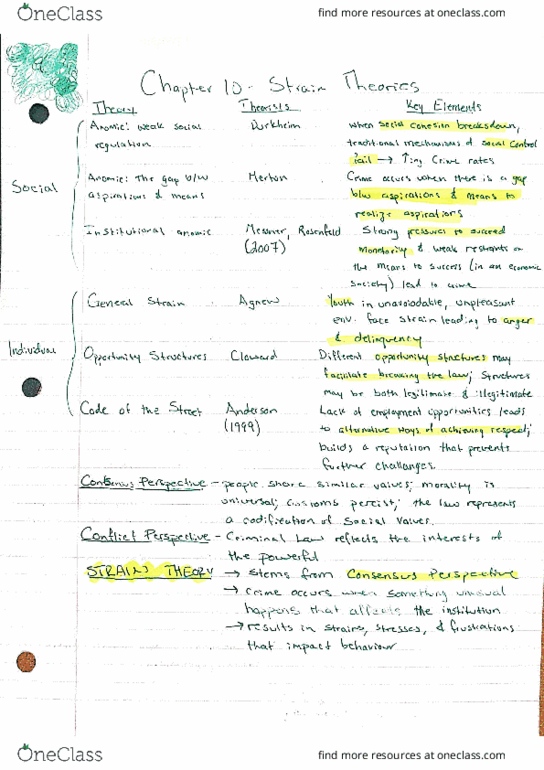 OneClass
find more resources at oneclass.com
Chapter 10 - Strain Theories
Theory Theorists Key Elements
Anomie: weak social regulation
Durkheim
When social cohesion breakdown,
traditional mechanisms of social control
fail → ↑ing crime rates
Social
Anomie: The gap b/w
aspirations & means
Merton
Crime occurs when there is a gap
b/w aspirations & means to
realize aspirations
Institutional anomie
Messner, Rosenfeld
(2007)
Strong pressures to succeed
monetarily & weak restraints on
the means to success (in an economic
society) lead to crime
Individual
General Strain
Agnew
Youth in unavoidable, unpleasant
env. face strain leading to anger
& delinquency
Opportunity Structures
Cloward
Different opportunity structures may
facilitate breaking the law; structures
may be both legitimate & illegitimate
Code of the Street
Anderson
(1999)
Lack of employment opportunities leads
to alternative ways of achieving respect;
builds a reputation that prevents
further challenges
Consensus Perspective - people share similar values; morality is
universal; customs persist; the law represents
a codification of social values.
Conflict Perspective - Criminal Law reflects the interests of
the powerful
STRAIN THEORY → stems from Consensus Perspective
→ crime occurs when something unusual
happens that affects the institution
→ results in strains, stresses, & frustrations
that impact behaviour
OneClass
find more resources at oneclass.com